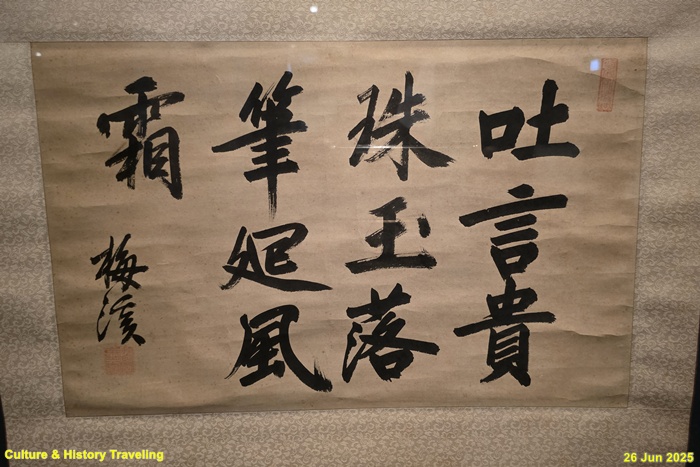 吐言貴
珠玉落
筆起風
霜
梅溪
Culture & History Traveling
26 Jun 2025